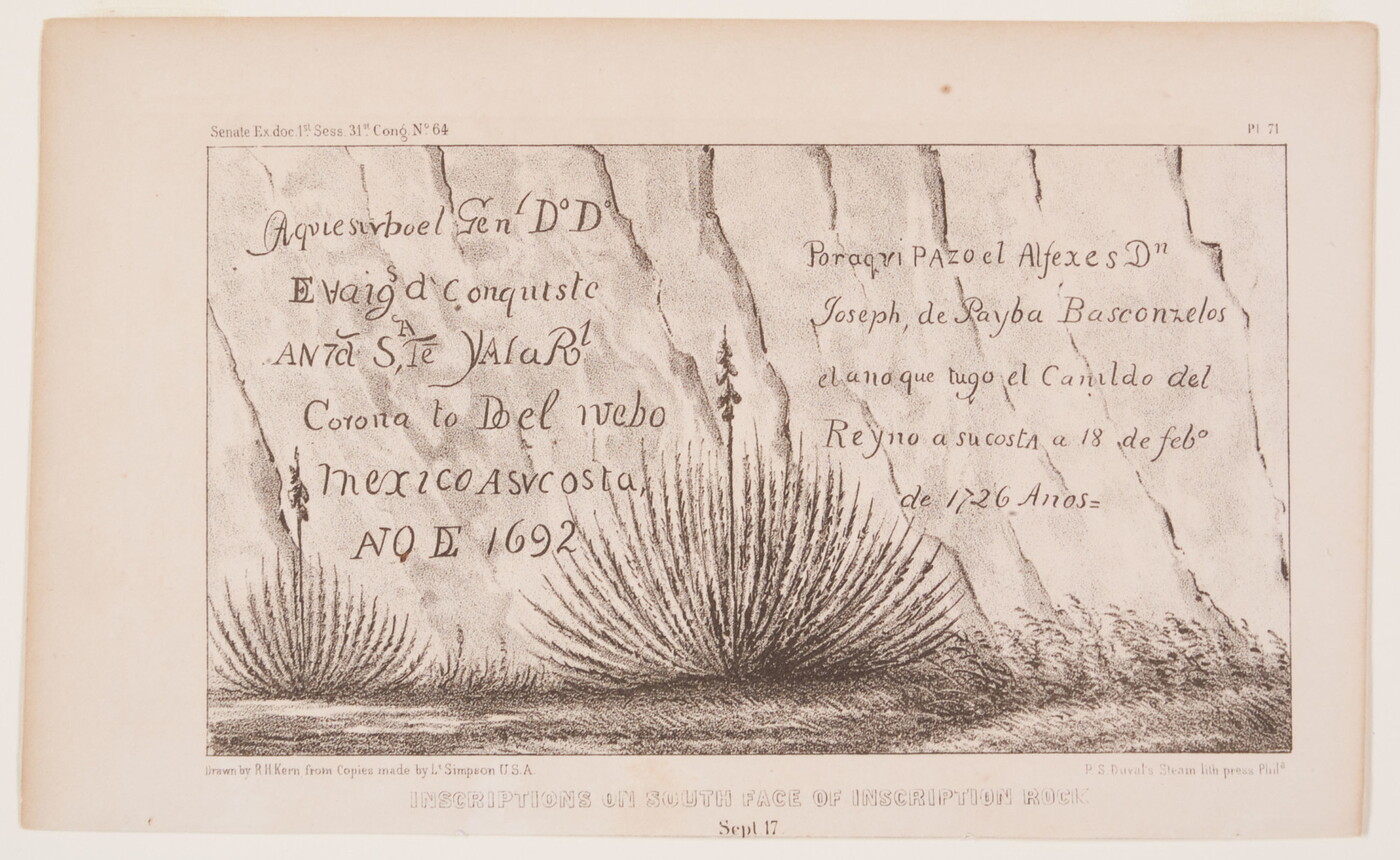 Senate Ex.doc. 1st Sess. 31st Cong. No 64
Pl. 71
Aqviesvrboel Genl Do Do
E Vaigs d Conquistc
AN7d S,A Te YAlaRl
Corona to Del nvebo
Mexico Asvcosta,
AÑO DE 1692
Poraqvi PAzo el Alfexes Dn
Joseph, de Payba Basconzelos
el ano que tugo el Canildo del
Reyno a su costA a 18 de febo
de 1726 Anos=
Drawn by R.H.Kern from Copies made by Lt Simpson U.S.A.
P.S. Duval's Steam lith press Phila
INSCRIPTIONS ON SOUTH FACE OF INSCRIPTION ROCK
Sept 17